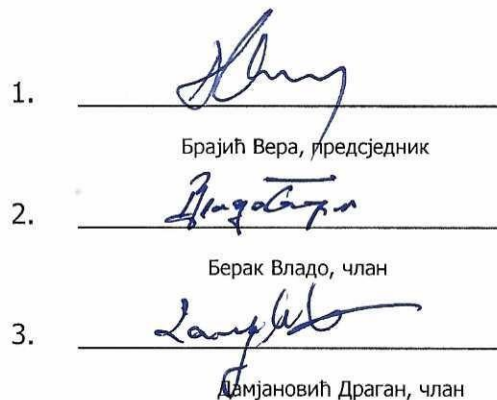 1.
Брајић Вера, предсједник
2.
Берак Владо, члан
3.
Дамјановић Драган, члан